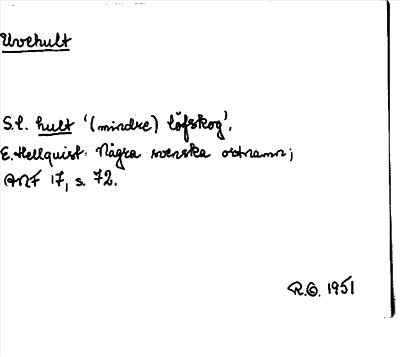 Uvehult
S.l. hult '(mindre) löfskog'.
E. Hellquist: Några svenska ortnamn;
ANF 17, s. 72.
R.G. 1951